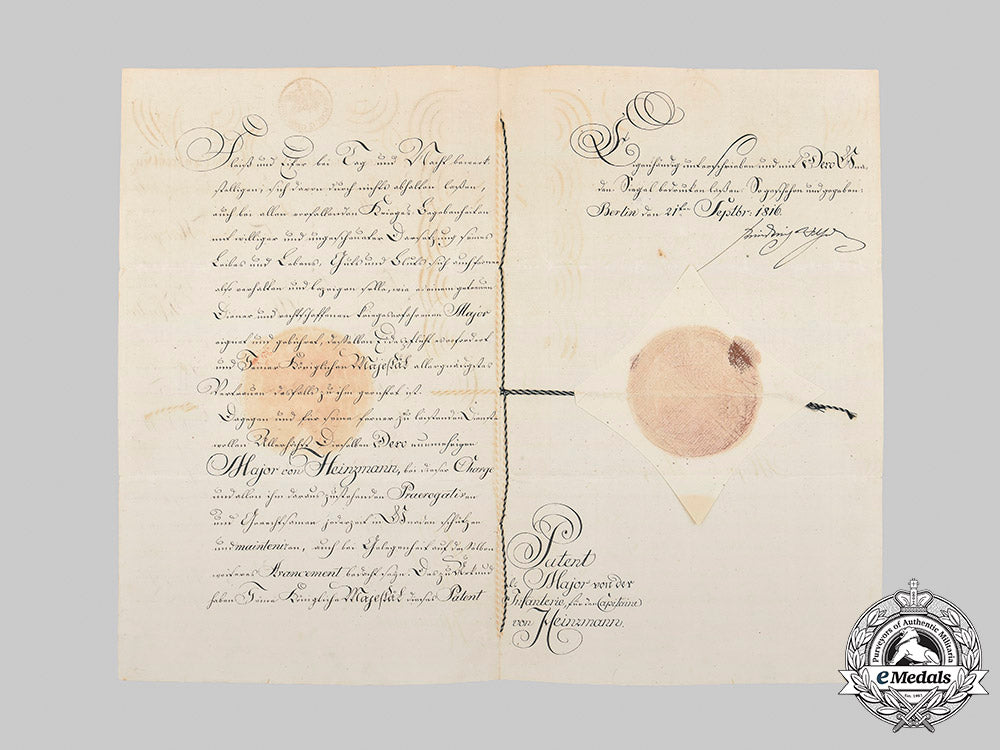 Fleiß und Eifer bei Tag und Nacht bewerk
stelligen, sich davon durch nichts abhalten laßen,
auch bei allen vorfallenden Krieges Begebenheiten
mit williger und ungescheuter Darsetzung seines
Leibes und Lebens, Guts und Bluts sich auch ferner
also verhalten und bezeigen solle, wie es einem getreuen
Diener und rechtschaffenen kriegeserfahrenen Major
eignet und gebühret, desselben Eides Pflicht es erfordert
und Seiner Königlichen Majestät allergnädigstes
Vertrauen desfalls zu ihm gerichtet ist.
Dagegen und für seine ferner zu leistenden Dienste
wollen Allerhöchst Dieselben Dero nunmehrigen
Major von Heinzmann, bei dieser Charge
und allen ihm daraus zustehenden Praerogativen
und Gerechtsamen jederzeit in Gnaden schützen
und mainteniren, auch bei Gelegenheit auf desselben
weiteres Avancement bedacht seyn. Des zu Urkund
haben Seine Königliche Majestät dieses Patent
Eigenhändig unterschrieben und mit Dero Gna-
den Siegel bedrucken laßen. So geschehen und gegeben:
Berlin den 21ten Septbr: 1816.
Patent
Major von der
Infanterie, für den Capitaine
von Heinzmann.
Purveyors of Authentic Militaria
eMedals